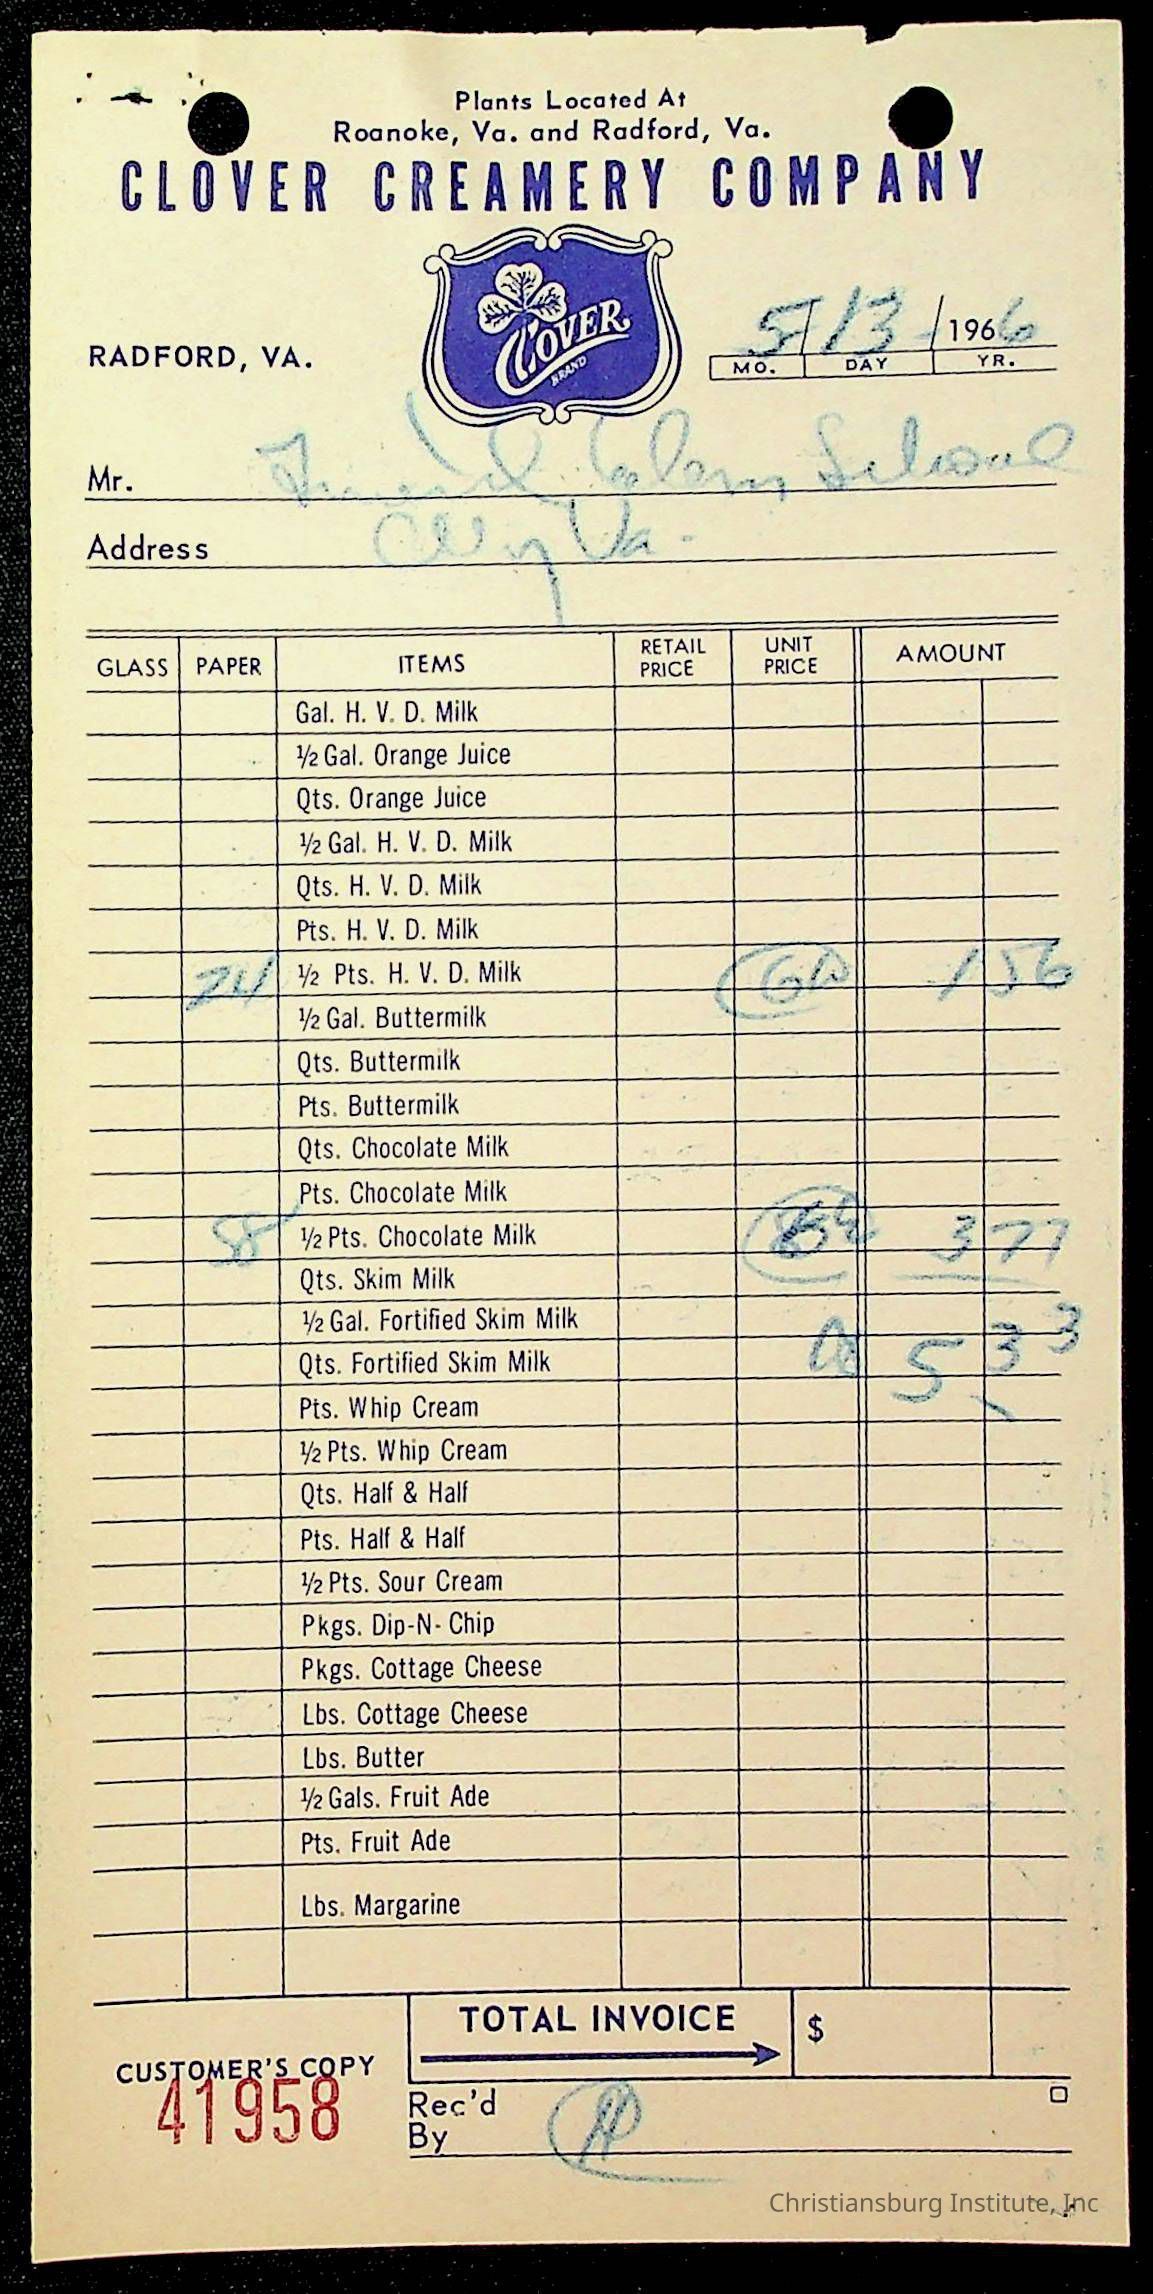 Plants Located At
Roanoke, Va. and Radford, Va.
CLOVER CREAMERY COMPANY
CLOVER
BRAND
RADFORD, VA.
5/13/1966
MO. DAY YR.
Mr. Friends Elem School
Address Va.
GLASS PAPER ITEMS RETAIL PRICE UNIT PRICE AMOUNT
Gal. H. V. D. Milk
½ Gal. Orange Juice
Qts. Orange Juice
½ Gal. H. V. D. Milk
Qts. H. V. D. Milk
Pts. H. V. D. Milk
24 ½ Pts. H. V. D. Milk 1 56
½ Gal. Buttermilk
Qts. Buttermilk
Pts. Buttermilk
Qts. Chocolate Milk
Pts. Chocolate Milk
58 ½ Pts. Chocolate Milk 3 77
Qts. Skim Milk
½ Gal. Fortified Skim Milk
Qts. Fortified Skim Milk 5 33
Pts. Whip Cream
½ Pts. Whip Cream
Qts. Half & Half
Pts. Half & Half
½ Pts. Sour Cream
Pkgs. Dip-N-Chip
Pkgs. Cottage Cheese
Lbs. Cottage Cheese
Lbs. Butter
½ Gals. Fruit Ade
Pts. Fruit Ade
Lbs. Margarine
TOTAL INVOICE $
CUSTOMER'S COPY
41958
Rec'd
By
Christiansburg Institute, Inc